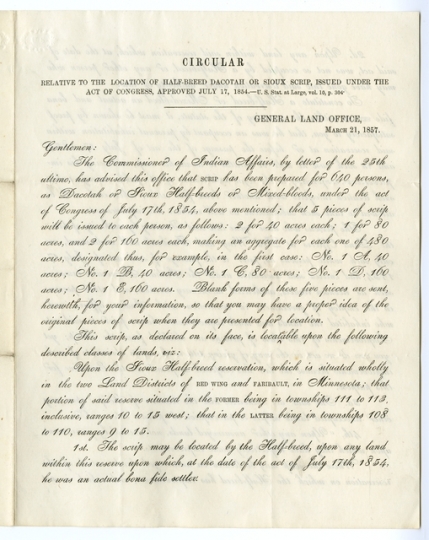 CIRCULAR
RELATIVE TO THE LOCATION OF HALF-BREED DACOTAH OR SIOUX SCRIP, ISSUED UNDER THE
ACT OF CONGRESS, APPROVED JULY 17, 1854.—U. S. Stat. at Large, vol. 10, p. 304
GENERAL LAND OFFICE,
MARCH 21, 1857.
Gentlemen:
The Commissioner of Indian Affairs, by letter of the 25th
ultimo, has advised this office that SCRIP has been prepared for 640 persons,
as Dacotah or Sioux Half-breeds or Mixed-bloods, under the act
of Congress of July 17th, 1854, above mentioned; that 5 pieces of scrip
will be issued to each person, as follows: 2 for 40 acres each; 1 for 80
acres, and 2 for 160 acres each, making an aggregate for each one of 480
acres, designated thus, for example, in the first case: No. 1 A, 40
acres; No. 1 B, 40 acres; No. 1 C, 80 acres; No. 1 D, 160
acres; No. 1 E, 160 acres. Blank forms of these five pieces are sent,
herewith, for your information, so that you may have a proper idea of the
original pieces of scrip when they are presented for location.
This scrip, as declared on its face, is locatable upon the following
described classes of lands, viz:
Upon the Sioux Half-breed reservation, which is situated wholly
in the two Land Districts of RED WING and FARIBAULT, in Minnesota; that
portion of said reserve situated in the FORMER being in townships 111 to 113,
inclusive, ranges 10 to 15 west; that in the LATTER being in townships 108
to 110, ranges 9 to 15.
1st. The scrip may be located by the Half-breed, upon any land
within this reserve upon which, at the date of the act of July 17th, 1854,
he was an actual bona fide settler.